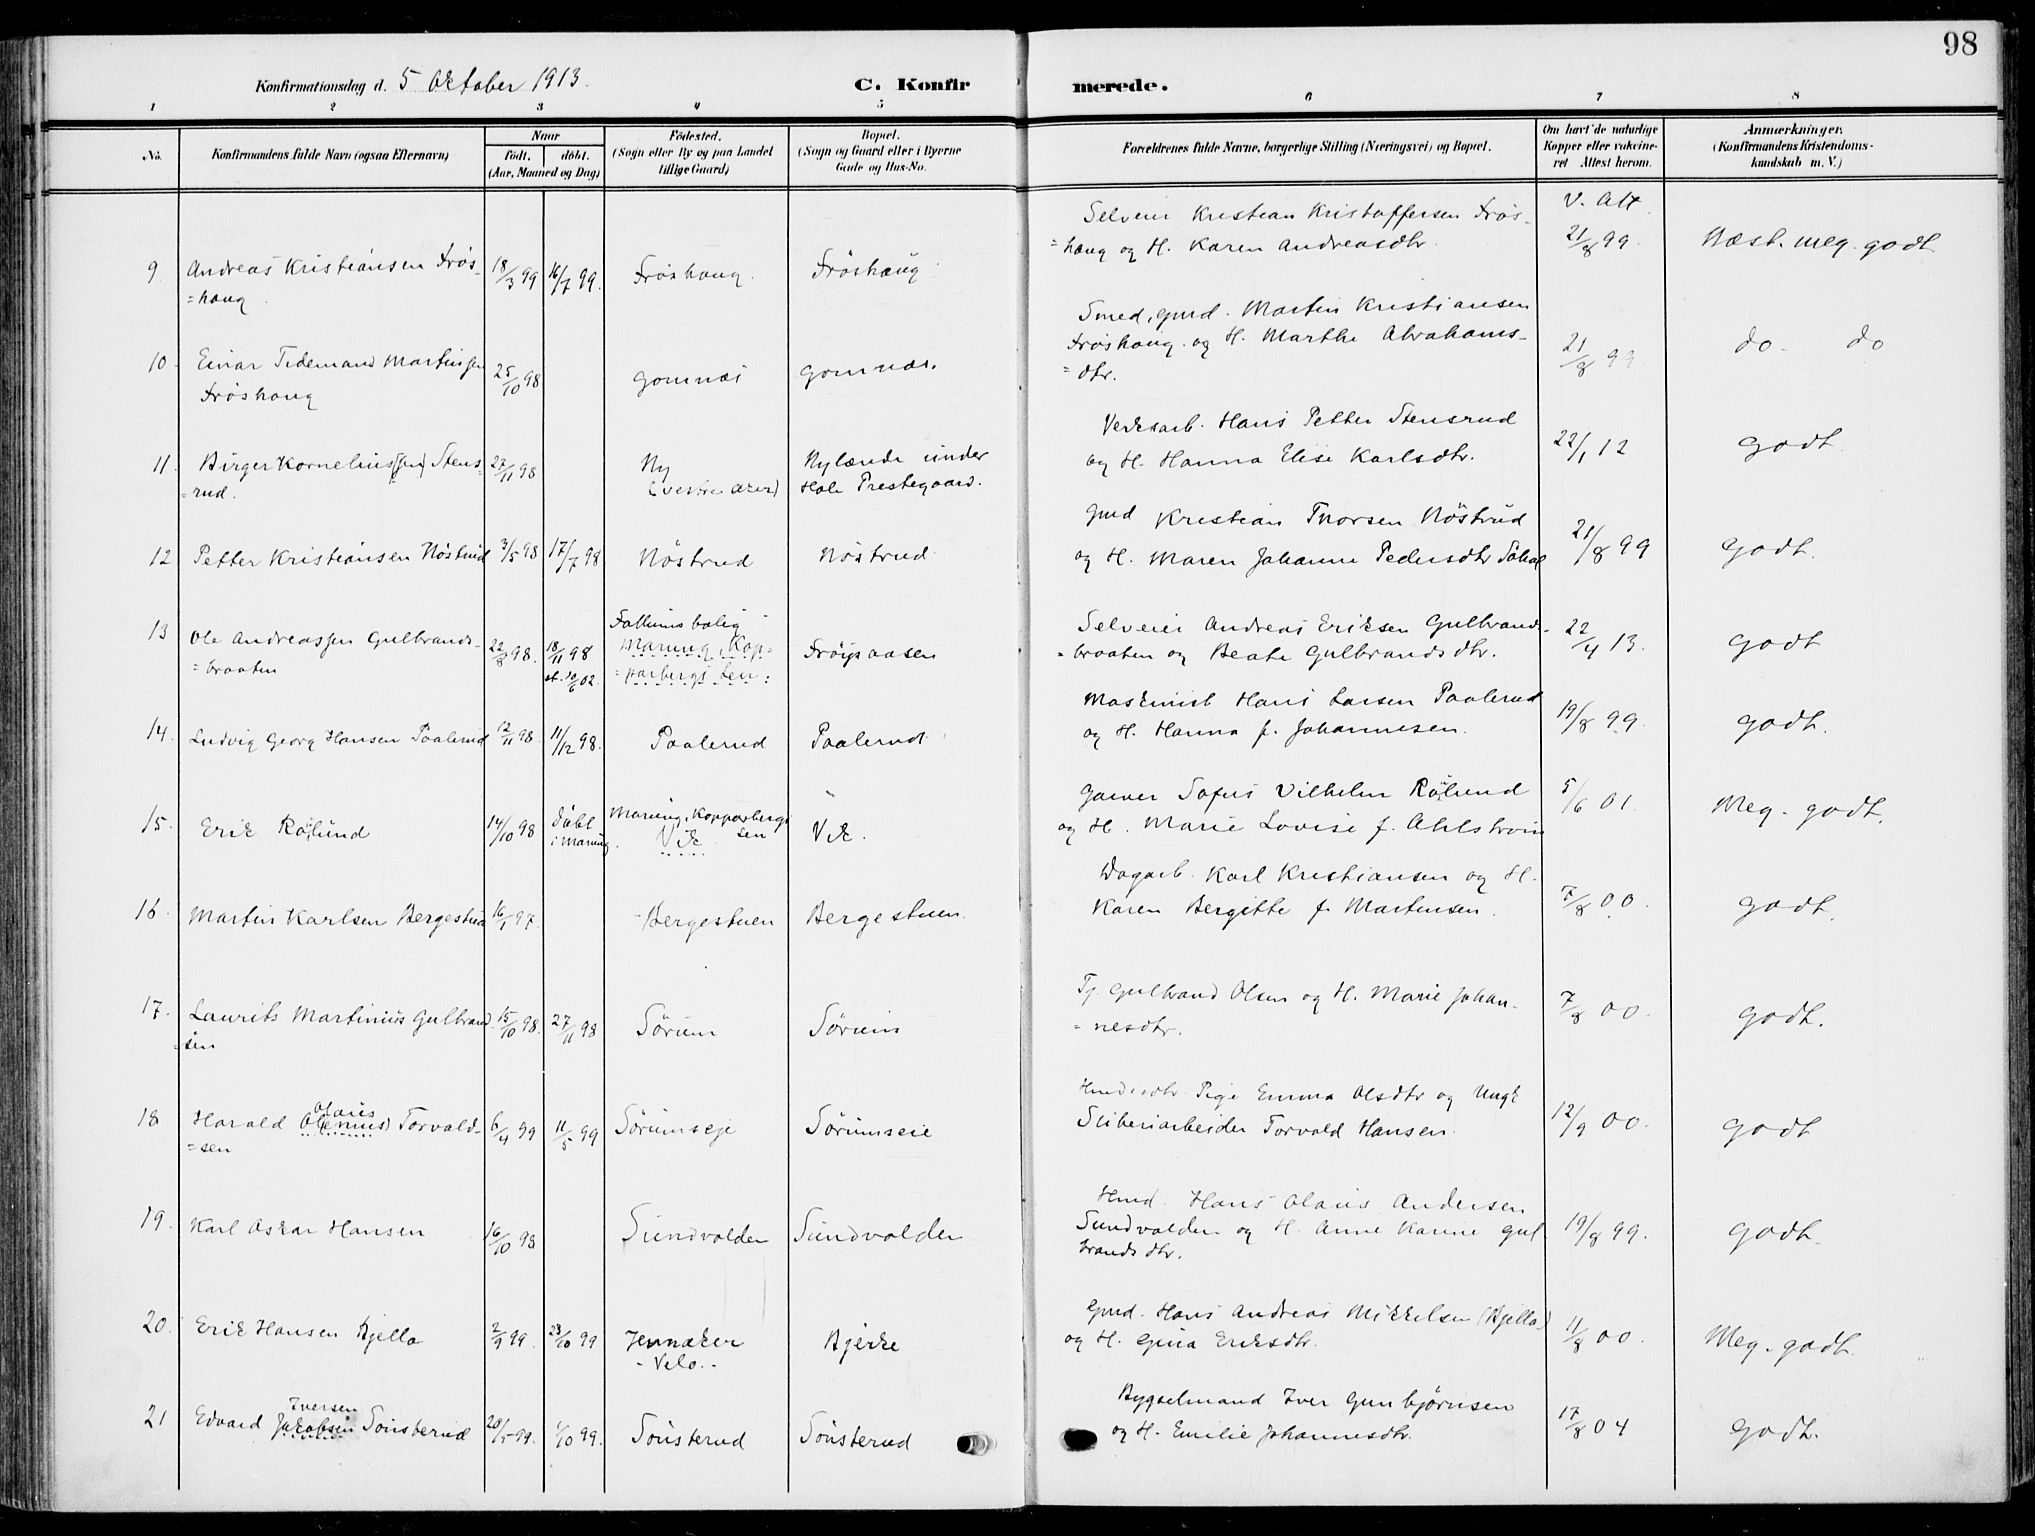 98
Konfirmationsdag d. 5 Oktober 1913.
C. Konfirmerede.
1 2 3 4 5 6 7 8
No.
Konfirmandens fulde Navn (ogsaa Efternavn)
Naar
født. døbt.
(Aar, Maaned og Dag)
Födested.
(Sogn eller By og paa Landet
tillige Gaard)
Bopæl.
(Sogn og Gaard eller i Byerne
Gade og Hus-No.
Forældrenes fulde Navne, borgerlige Stilling (Næringsvei) og Bopæl.
Om havt de naturlige
Kopper eller vakcine-
ret Attest herom.
Anmærkninger.
(Konfirmandens Kristendoms-
kundskab m. V.)
Selveier Kristian Kristoffersen Frøs- V. Att
9. Andreas Kristiansen Frøs- 18/3 99 16/7 99. Frøshaug. Frøshaug =haug og H. Karen Andreasdtr. 21/8 99. Næst. meg. godt
=haug.
Smed, gmd. Martin Kristiansen
10. Einar Tidemand Martinsen 25/10 98 Gomnæs Gomnæs. Frøshaug og H. Marthe Abrahams- 21/8 99 do do
Frøshaug =dtr.
Verksarb. Hans Petter Stensrud
11. Birger Kornelius(sen) Stens- 27/11 98 Ny Nylænde under og H. Hanna Elise Karlsdtr. 22/1 12 Godt
=rud. (vestre Aker) Hole Prestegaard.
Gmd Kristian Thorsen Nøstrud
12 Petter Kristiansen Nøstrud 3/5 98 17/7 98 Nøstrud Nøstrud og H. Maren Johanne Pedersdtr 21/8 99 Godt.
13 Ole Andreassen Gulbrands- 22/8 98. 18/11 98 Marung, Kop- Frøysaasen Selveier Andreas Eriksen Gulbrands- 22/4 13. Godt
=braaten =parbergs Len: =braaten og Beate Gulbrandsdtr.
Maskinist Hans Larsen Paalerud
14. Ludvig Georg Hansen Paalerud 12/11 98. 11/12 98. Paalerud Paalerud og H. Hanna f. Johannesen. 19/8 99. Godt.
Garver Sofus Vilhelm Rølund
15. Erik Rølund 14/10 98 døbt i Marung. Marung, Kopparbergs Len Vik Vik. og H. Marie Lovise f. Ahlstrøm 5/6 01. Meg. godt.
Dagarb. Karl Kristiansen og H.
16. Martin Karlsen Bergestua 16/1 97. Bergestuen Bergestuen. Karen Bergitte f. Martinsen. 7/8 00. Godt.
Tj. Gulbrand Olsen og H. Marie Johan-
17. Laurits Martinius Gulbrand- 15/10 98. 27/11 98 Sørum Sørum =nesdtr. 7/8 00. Godt.
=sen
Pige Emma Olsdtr og Ungk
18 Harald Olaus Torvald- 6/4 99 11/5 99 Sørumseje Sørumseie Sliberiarbeider Torvald Hansen. 12/9 00. Godt
=sen
Hmd. Hans Olaus Andersen
19. Karl Oskar Hansen 16/10 98 Sundvolden Sundvolden Sundvolden og H. Anne Karine Gul 19/8 99. Godt.
brandsdtr.
Gmd. Hans Andreas Mikkelsen (Bjella)
20. Erik Hansen Bjella 2/9 99. 23/10 99 Jennaker Velo. Bjerke og H. Gina Eriksdtr. 11/8 00. Meg. godt.
Bygselmand Iver Gunbjørnsen
21 Edvard Jakobsen Iversen Sønsterud 20/5 99. 1/10 99. Sønsterud Sønsterud og H. Emilie Johannesdtr. 17/8 04 Godt.